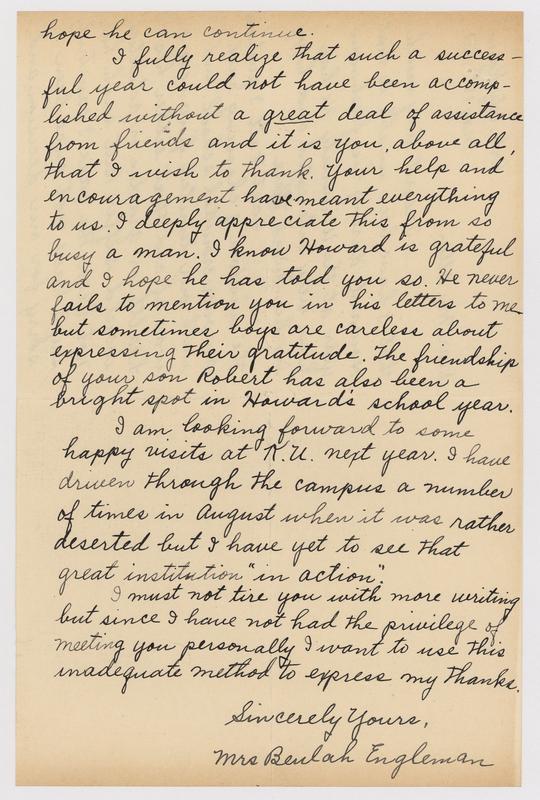 hope he can continue.
I fully realize that such a success-
ful year could not have been accomp-
lished without a great deal of assistance
from friends and it is you, above all,
that I wish to thank. Your help and
encouragement have meant everything
to us. I deeply appreciate this from so
busy a man. I know Howard is grateful
and I hope he has told you so. He never
fails to mention you in his letters to me
but sometimes boys are careless about
expressing their gratitude. The friendship
of your son Robert has also been a
bright spot in Howard's school year.
I am looking forward to some
happy visits at K.U. next year. I have
driven through the campus a number
of times in August when it was rather
deserted but I have yet to see that
great institution "in action".
I must not tire you with more writing
but since I have not had the privilege of
meeting you personally I want to use this
inadequate method to express my thanks.
Sincerely Yours,
Mrs Beulah Engleman